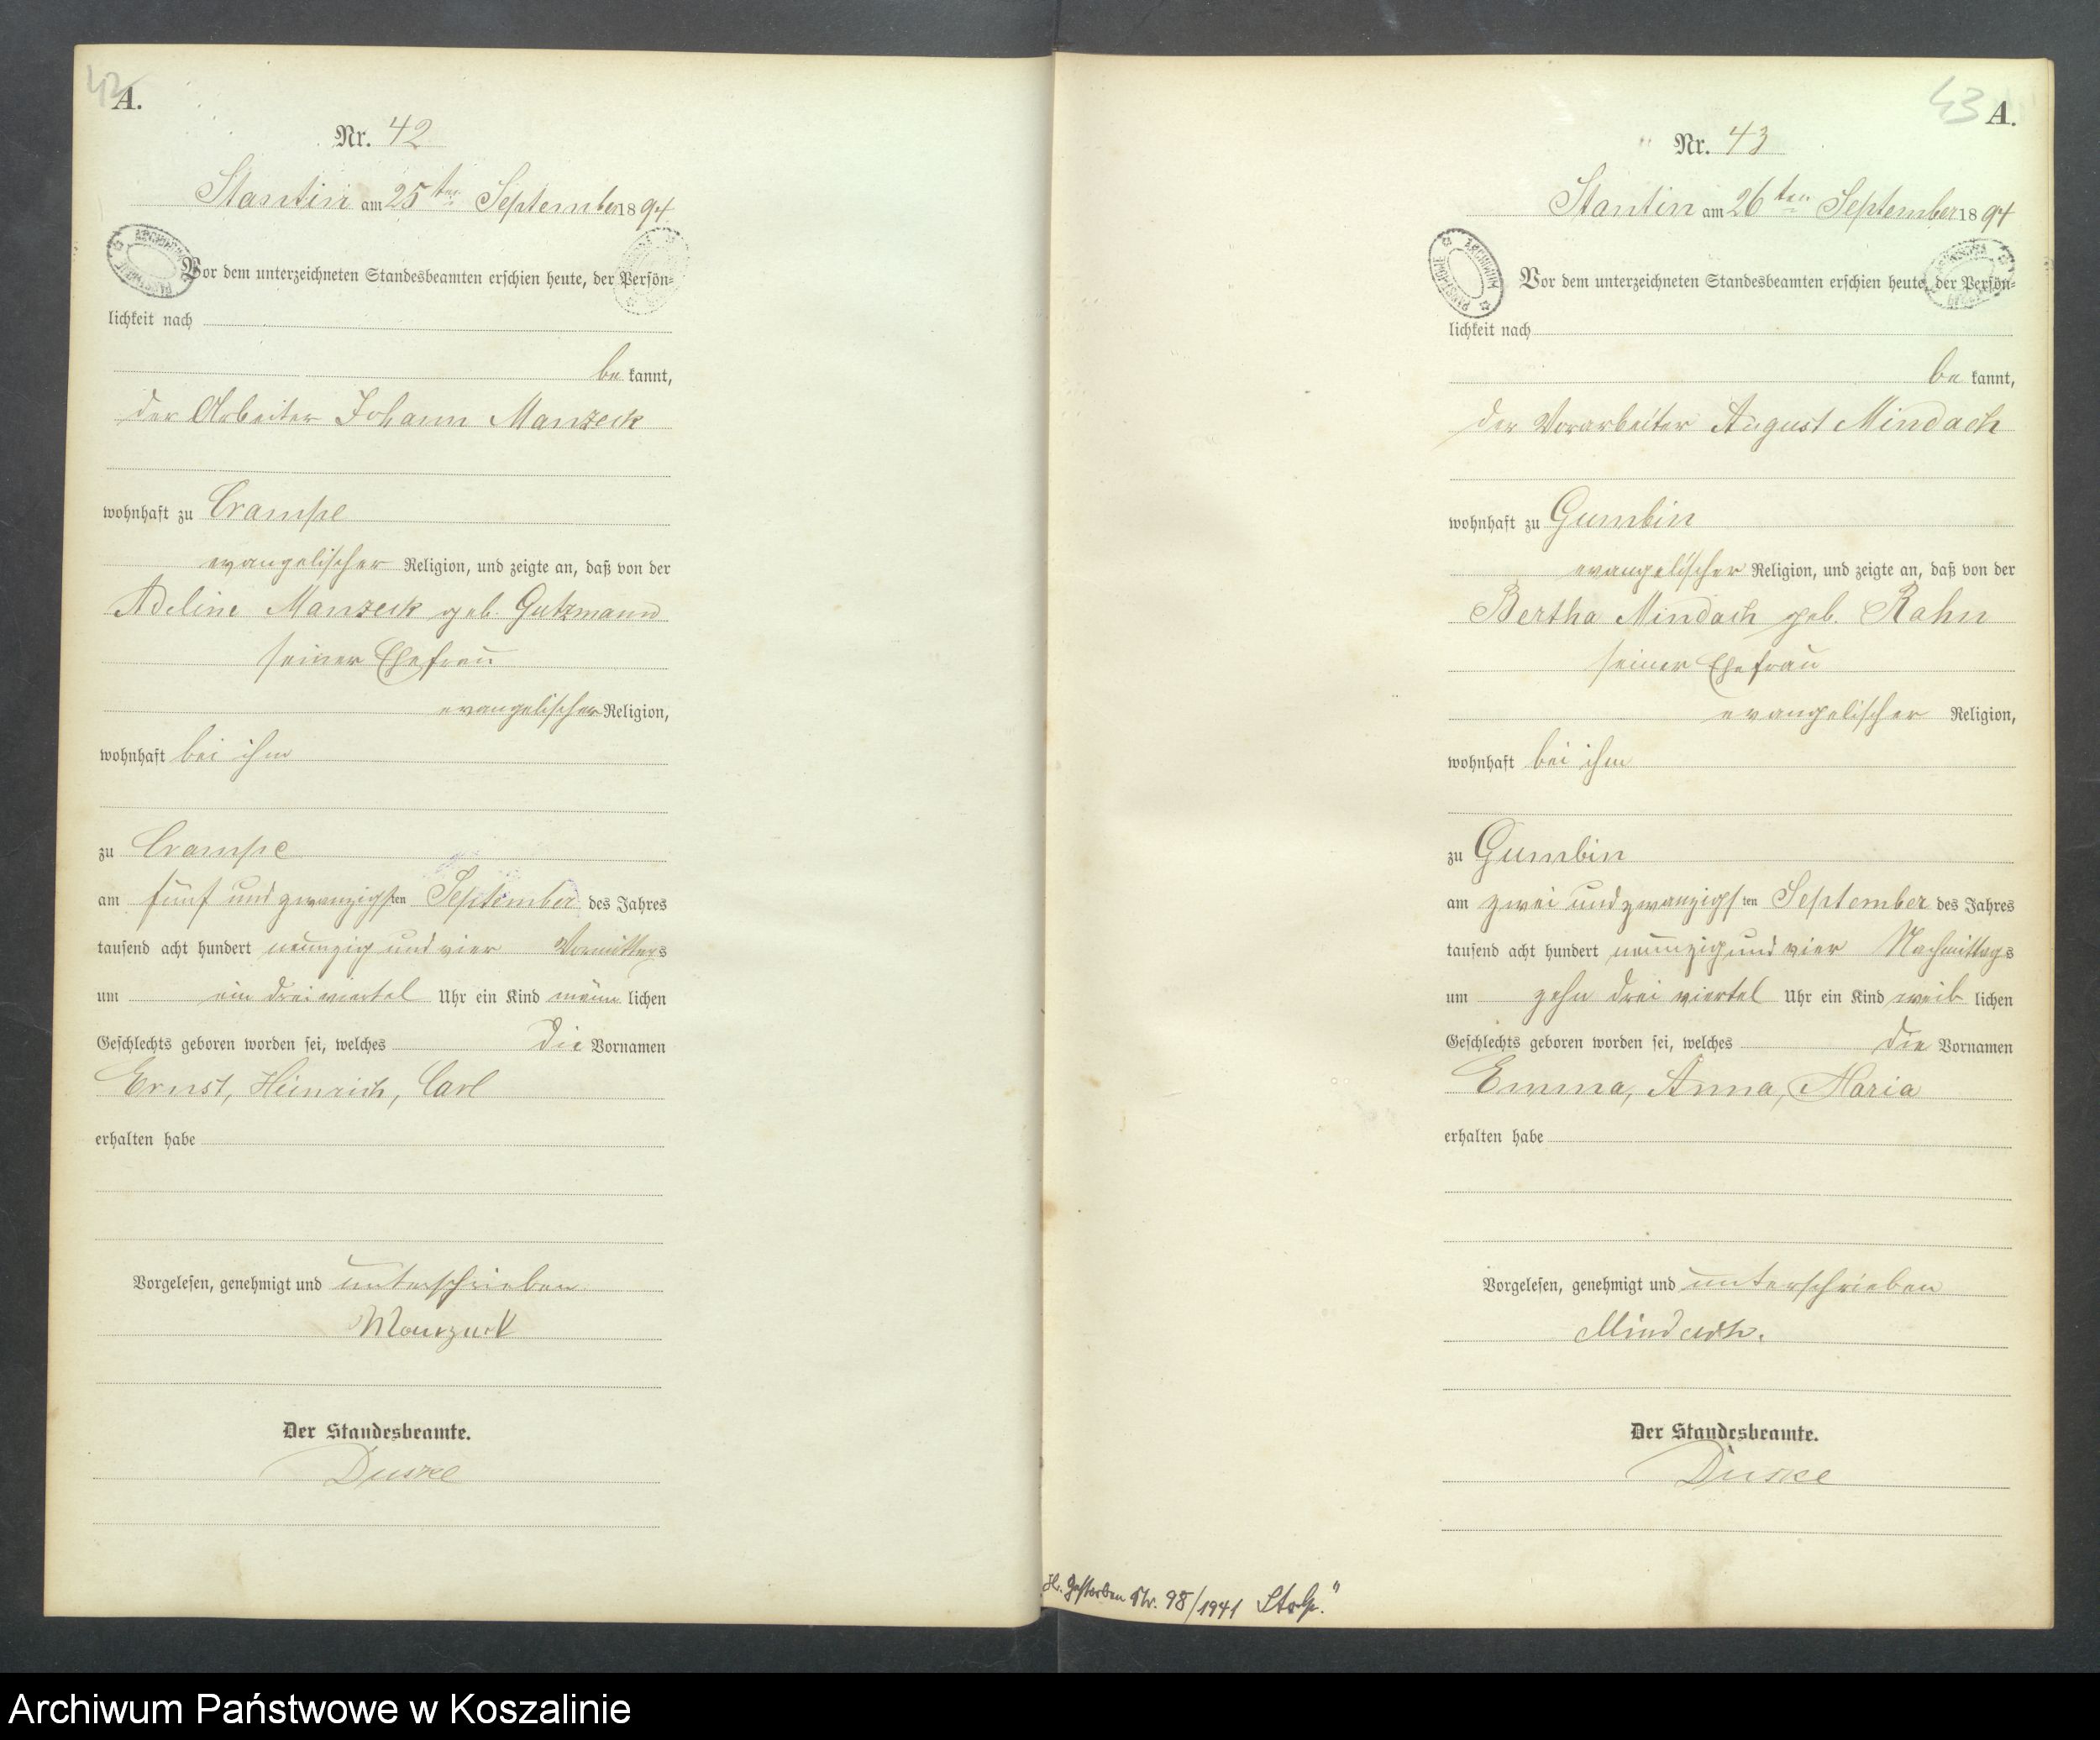 42
A.
Nr. 42
Stantin am 25ten September 1894
Vor dem unterzeichneten Standesbeamten erschien heute, der Persön=
lichkeit nach
be kannt,
der Arbeiter Johann Manzeck
wohnhaft zu Crampe
evangelischer Religion, und zeigte an, daß von der
Adeline Manzeck geb. Gutzmann
seiner Ehefrau
evangelischer Religion,
wohnhaft bei ihm
zu Crampe
am fünf und zwanzigsten September des Jahres
tausend acht hundert neunzig und vier Vormittags
um ein dreiviertel Uhr ein Kind männ lichen
Geschlechts geboren worden sei, welches die Vornamen
Ernst, Heinrich, Carl
erhalten habe
Vorgelesen, genehmigt und unterschrieben
Manzeck
Der Standesbeamte.
Duske
43
A.
Nr. 43
Stantin am 26ten September 1894
Vor dem unterzeichneten Standesbeamten erschien heute, der Persön=
lichkeit nach
be kannt,
der Vorarbeiter August Mindach
wohnhaft zu Gumbin
evangelischer Religion, und zeigte an, daß von der
Bertha Mindach geb. Rahn
seiner Ehefrau
evangelischer Religion,
wohnhaft bei ihm
zu Gumbin
am zwei und zwanzigsten September des Jahres
tausend acht hundert neunzig und vier Nachmittags
um zehn drei viertel Uhr ein Kind weib lichen
Geschlechts geboren worden sei, welches die Vornamen
Emma, Anna, Maria
erhalten habe
Vorgelesen, genehmigt und unterschrieben
Mindach.
Der Standesbeamte.
Duske
Gestorben Nr. 98/1941 Stolp."
Archiwum Państwowe w Koszalinie